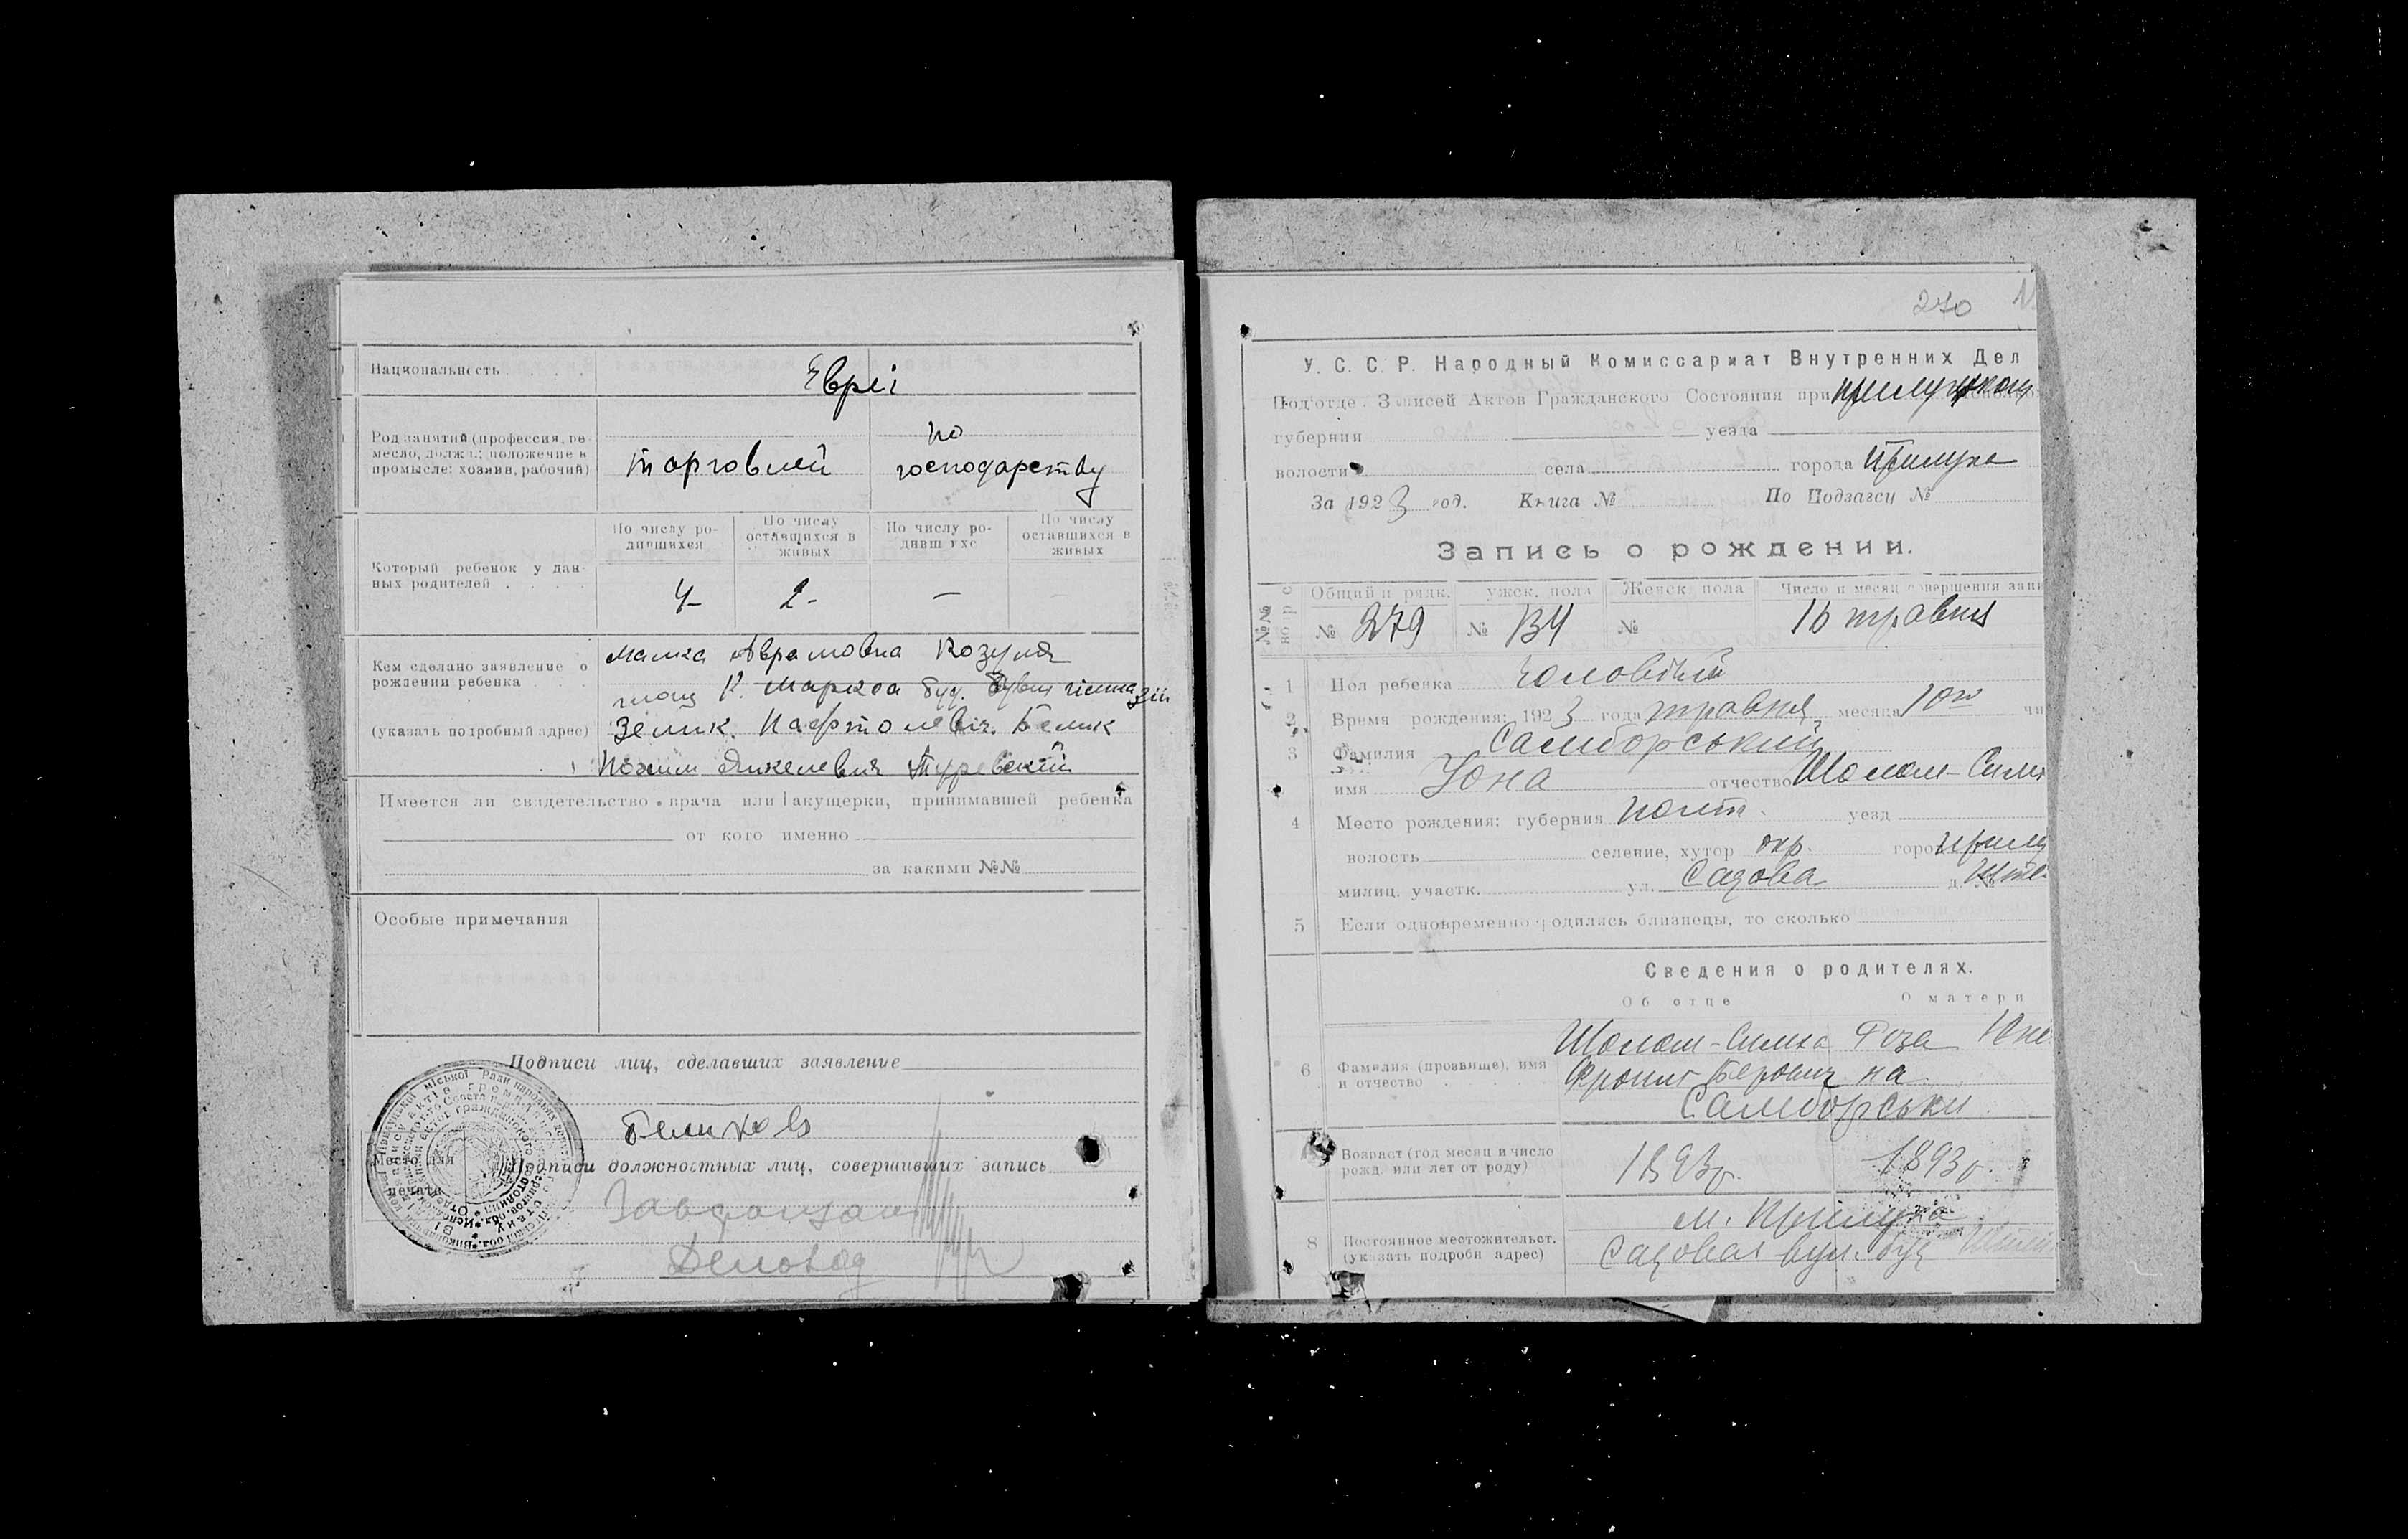 Национальность
Евреі
Род занятий (профессия, ре-
месло, должн.; положение в
промысле: хозяин, рабочий)
торговлей
по
господарству
По числу ро-
дившихся
По числу
оставшихся в
живых
По числу ро-
дивш хс
По числу
оставшихся в
живых
Который ребенок у дан-
ных родителей
4-
2-
—
Кем сделано заявление о
рождении ребенка
(указать подробный адрес)
Малка Аврамовна Козуля
К. Маркса буд. гімназіи
Зелик. Нафтолевіч. Белик
Янкелевич
Имеется ли свидетельство врача или акушерки, принимавшей ребенка
от кого именно
за какими №№
Особые примечания
Подписи лиц, сделавших заявление
Место для
печати
Подписи должностных лиц, совершивших запись
Діловод
270
У. С. С. Р. Народный Комиссариат Внутренних Дел
Под'отде. Записей Актов Гражданского Состояния при
губернии уезда
волости села города Прилуки
За 1923 год. Книга № По Подзагсу №
Запись о рождении.
Общий п рядк. ужск. пола Женск. пола Число и месяц совершения запи
№ 279 № 134 № 16 травня
1 Пол ребенка Чоловічий
2 Время рождения: 1923 года травня месяца 10го чи
3 Фамилия Самборський
имя Іона отчество Шолом-Симх
4 Место рождения: губерния Полт. уезд
волость селение, хутор окр. горо Прилу
милиц. участк. ул. Садова д.
5 Если одновременно родились близнецы, то сколько
Сведения о родителях.
Об отце О матери
6 Фамилия (прозвище), имя
и отчество
Шолом-Симха Роза
Берович на
Самборськи
Возраст (год месяц и число
рожд. или лет от роду)
1893г. 1893г.
8 Постоянное местожительст.
(указать подробн адрес)
м. Прилука
Садовая вул. буд